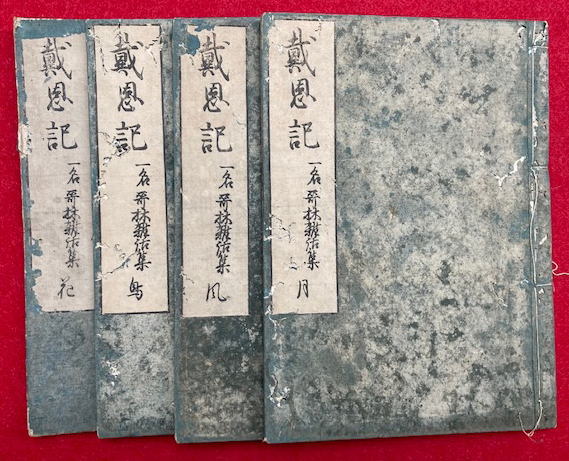 戴恩記 一名哥林雜話集 花
戴恩記 一名哥林雜話集 鳥
戴恩記 一名哥林雜話集 風
戴恩記 一名哥林雜話集 月